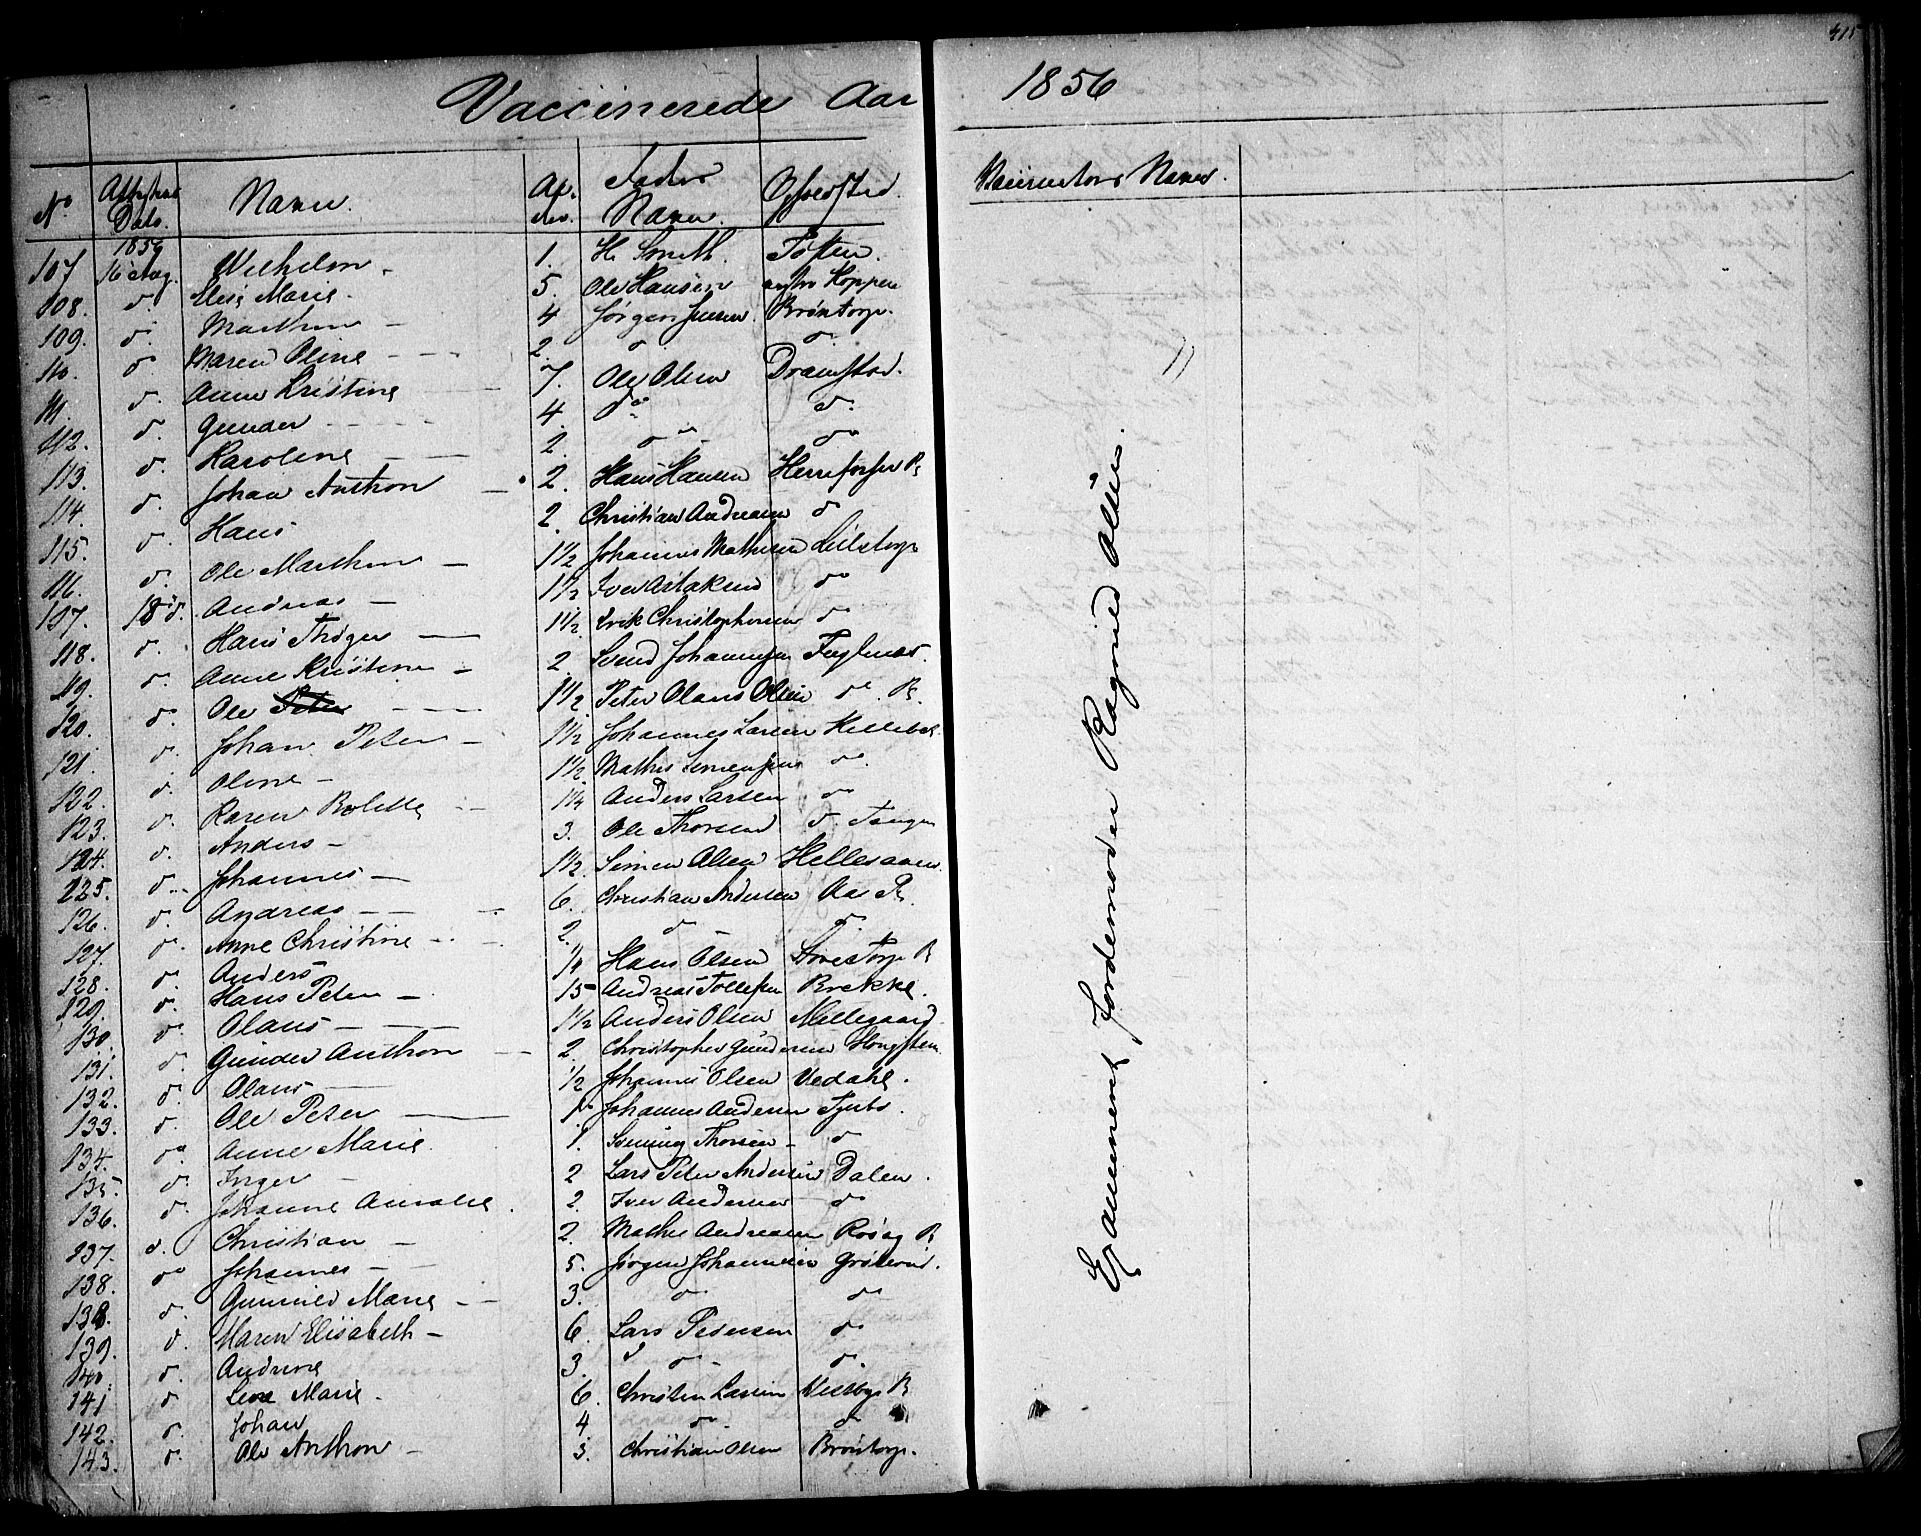 415
Vaccinerede Aar 1856
No Attestens Dato. Navn. Al- der. Faders Navn. Opholdsted. Vaccinators Navn.
1856
107 16 Aug. Wilhelm - 1. H. Smith. Toften.
108. do. Elise Marie. 5. Ole Hansen Hoppen
109. do. Mathea - 4 Jørgen Jensen Brøntorp.
110. do Maren Oline - - 2. do do
111. do. Anne Kristine - 7. Ole Olsen Dramstad.
112. do. Gunder - - - 4. do do.
113. do. Karoline - - 2. do do
114. do. Johan Anthon - 2. Hans Hansen Herrefosse P
115. do. Hans 2. Christian Andreasen do
116. do. Ole Marthin - 1 1/2 Johannes Mathisen Lilletorp
117. 18 do. Andreas - 1 1/2 Iver Aslaksen do
118. do. Hans Thøger - 1 1/2 Erik Christophersen do
119. do. Anne Kristine - 2 Svend Johannesen Fuglenes.
120. do. Ole Peter - - 1 1/2 Peter Olaus Olsen do. P.
121. do. Johan Peter - 1 1/2 Johannes Larsen
122. do. Oline - 1 1/2 Mathis Simensen do.
123. do. Karen Bolette - 1/4 Anders Larsen do
124. do. Anders - 3. Ole Thorsen do. Tangen
125. do. Johannes - 1 1/2 Simen Olsen Helleaaen
126. do. Andreas - - 6. Christian Andersen Aa P.
127. do. Anne Christine - 2. do do.
128. do. Anders 1/4 Hans Olsen Store Torp P
129. do. Hans Peter - 15 Andreas Tollefsen Brekke.
130. do Olaus - - 1 1/2 Anders Olsen Mellegaard
131. do. Gunder Anthon - 2. Christopher Gundersen
132. do. Olaus - 1/2 Johannes Olsen Vedahl.
133. do. Ole Peter - 1. Johannes Andersen
134. do Anne Marie. 1. Thorsen - do
135. do. Inger - 2 Lars Peter Andersen Dalen.
136. do. Johanne Amalie. 2. Iver Andersen - do
137. do. Christian - 2. Mathis Andreasen Røsæg P
138. do Johannes - - 5. Jørgen Johannesen Grøterød.
138. do. Gunnild Marie - - 3. do do
139. do. Maren Elisabeth - 6. Lars Pedersen do
140. do. Andrine 3. do - do.
141 do Lene Marie - 6. Christen Larsen P
142. do. Johan 4 do. do
143. do. Ole Anthon - 3. Christian Olsen Brøntorp.
Examineret Jordemoder Ragnild Olsen.